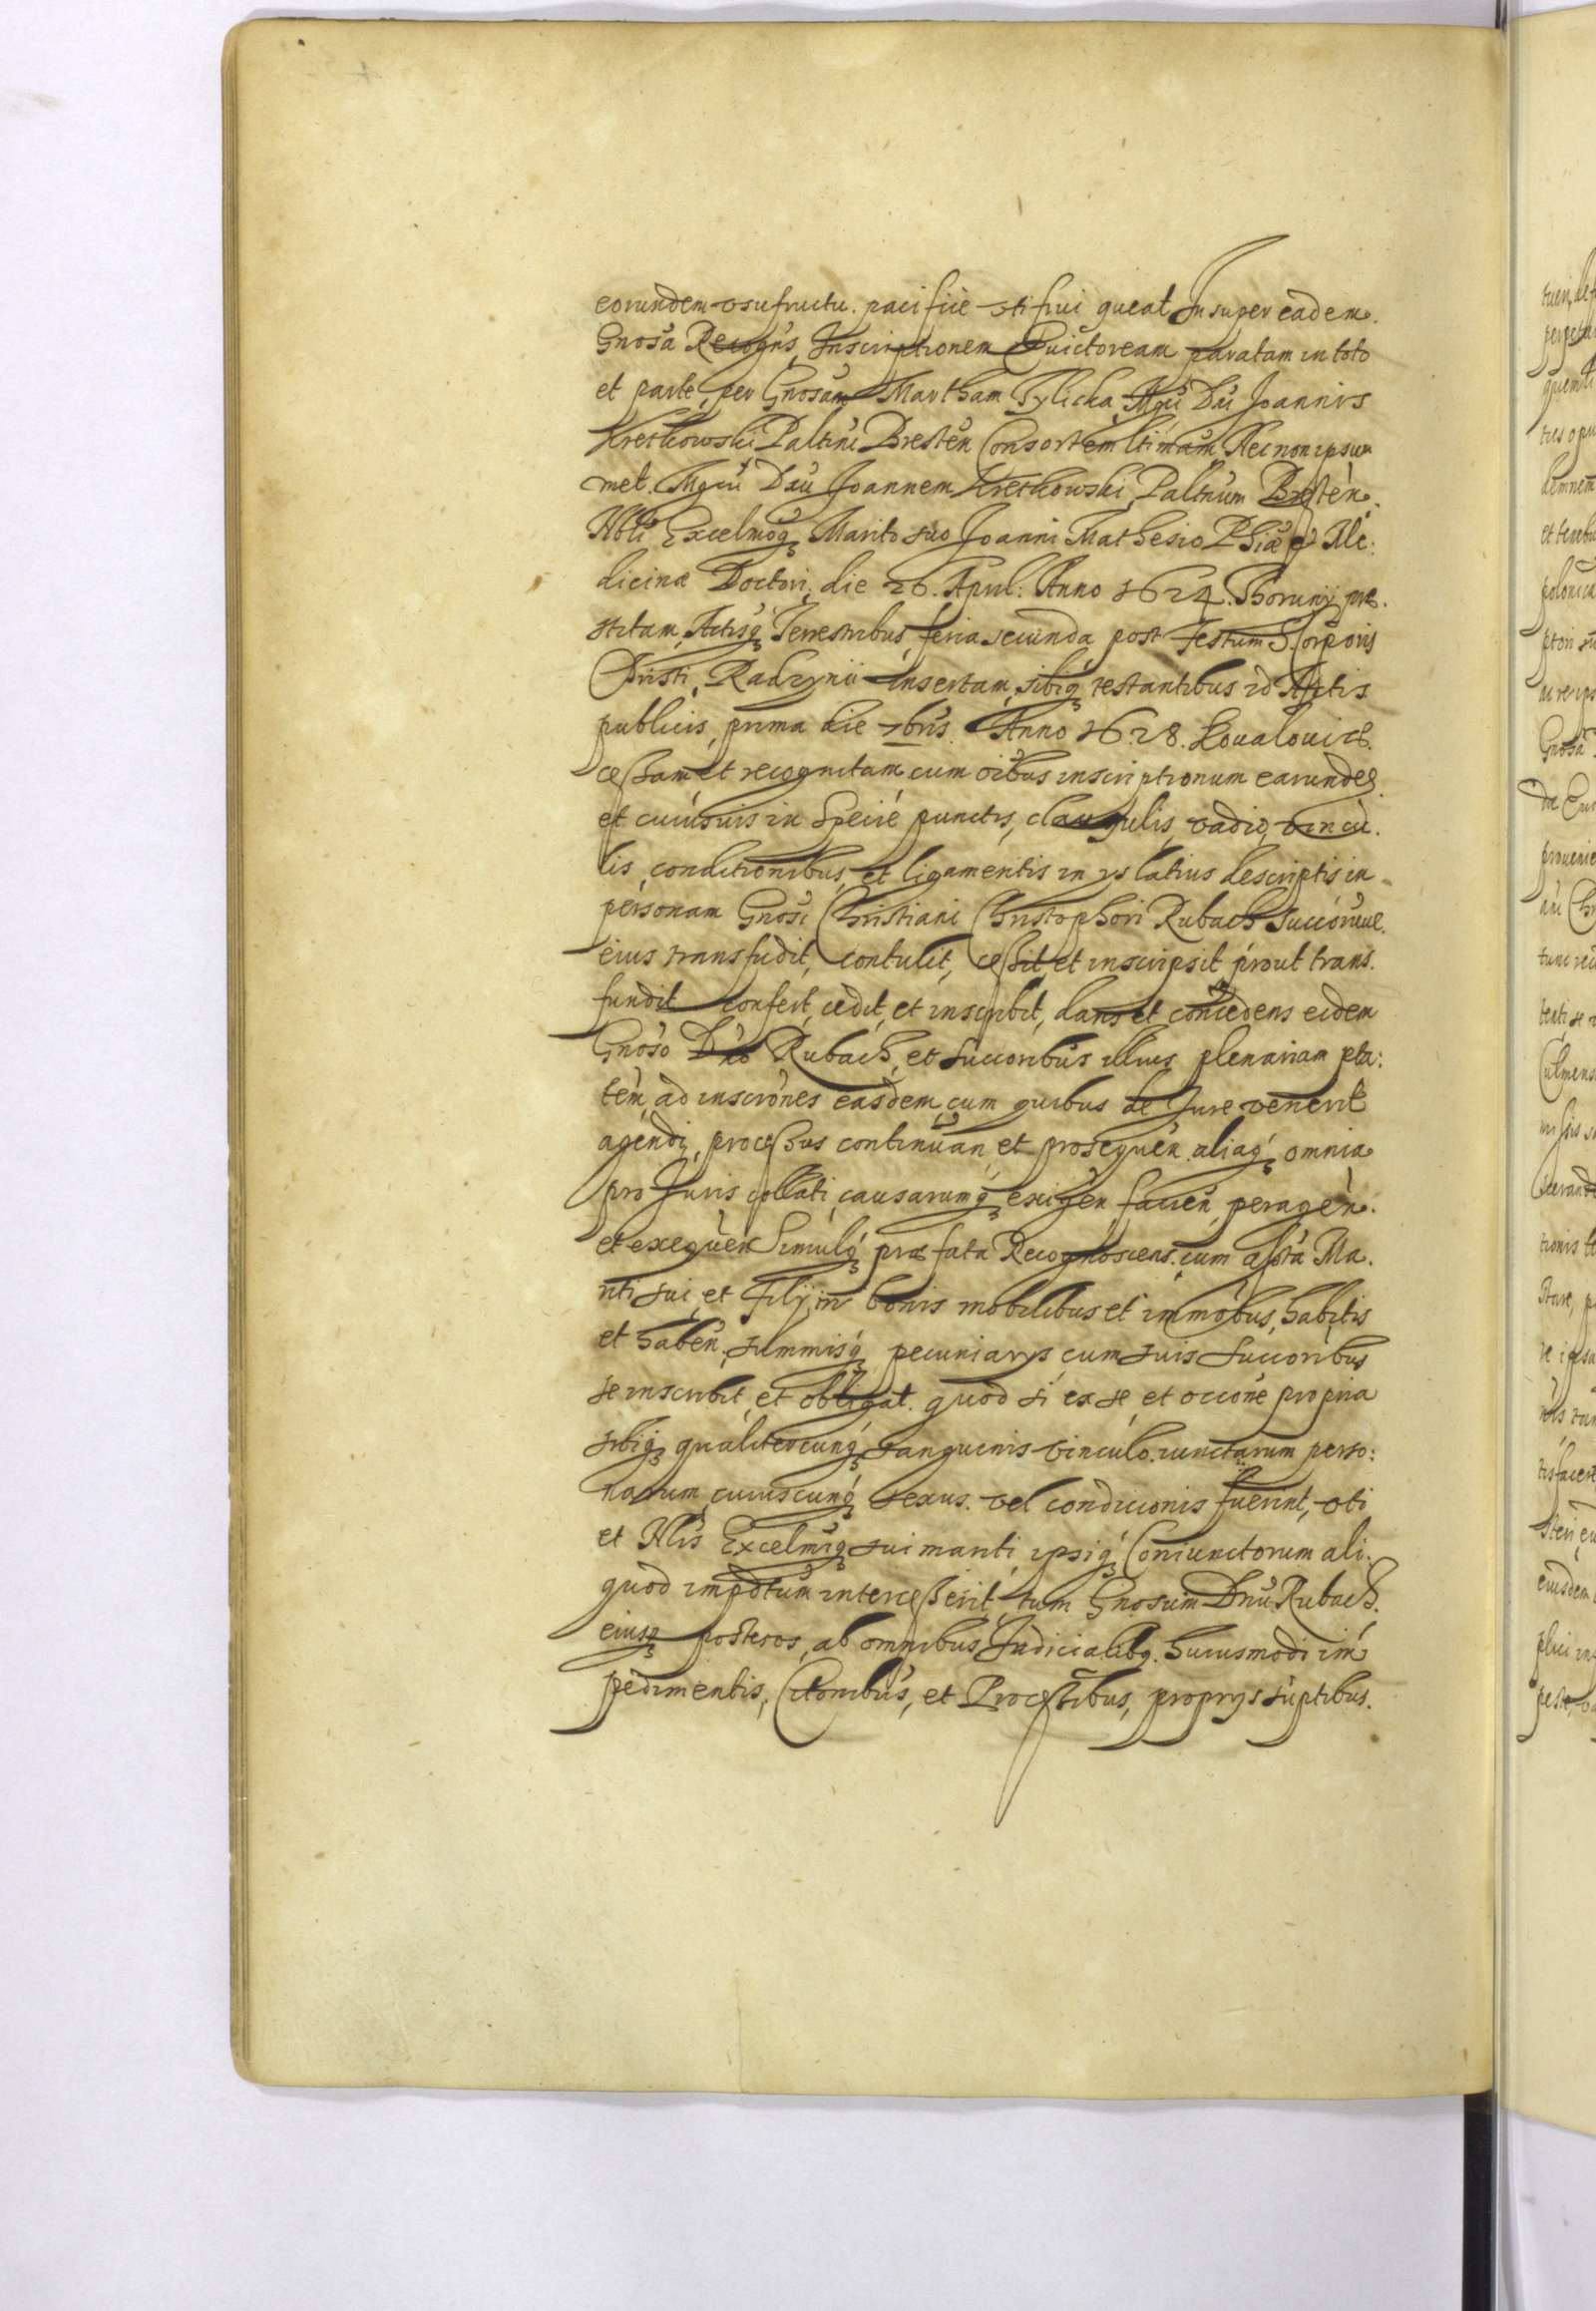 eorundem usufructu. pacifice uti frui queat Insuper eadem.
Gnosa Recogns, Inscriptionem Evictoream paratam in toto
et parte, per Gnosam Martham Tylicka, Mgci Dni Joannis
Kretkowski Paltini Bresten Consortem ltimam, Nec non ipsum
met. Mgcu Dnu Joannem Kretkowski, Paltnum Bresten.
Nbli Excelmoq Marito suo Joanni Mathesio Phiae et Me:
dicinae Doctori, die 26. April: Anno 1624. Thorunij pre.
stitam, Actisq Terrestribus, feria secunda post Festum S. Corporis
Christi, Radzynii insertam, sibiq restantibus id Actis
publicis, prima die 7bris. Anno 1628. Kovalovich.
cessam, et recognitam cum oibus inscriptionum earundem
et cuiusvis in specie punctis, clausulis, vadio, vincu.
lis, conditionibus, et ligamentis in ys latius descriptis in
personam Gnosi Christiani Christophori Rubach succorumve.
eius transfudit, contulit, cessit, et inscripsit prout trans.
fundit confert, cedit, et inscribit, dans et concedens eidem
Gnoso Dno Rubach, et succoribus illius plenariam pta:
tem, ad inscrones easdem cum quibus de Jure venerit
agendi, processus continuan et prosequen. aliaq omnia
pro Juris collati, causarumq exigen facien, peragen.
et exequen Simulq praefata Recognoscens. cum assta Ma.
riti sui, et Filij, in bonis mobilibus et immobus, habitis
et haben, summisq pecuniarys cum suis succoribus
se inscribit, et obligat. quod si ex se, et occone propria
sibiq qualitercunq sanguinis vinculo. iunctarum perso:
narum, cuiuscunq sexus. vel condicionis fuerint, uti
et Nlis Excelmiq sui mariti, ipsiq Coniunctorum ali.
quod impdtum intercesserit, tum Gnosum Dnu Rubach.
eiusq posteros, ab omnibus Judicialibq. huiusmodi im
pedimentis, Citonibus, et Processibus, proprys suptibus.